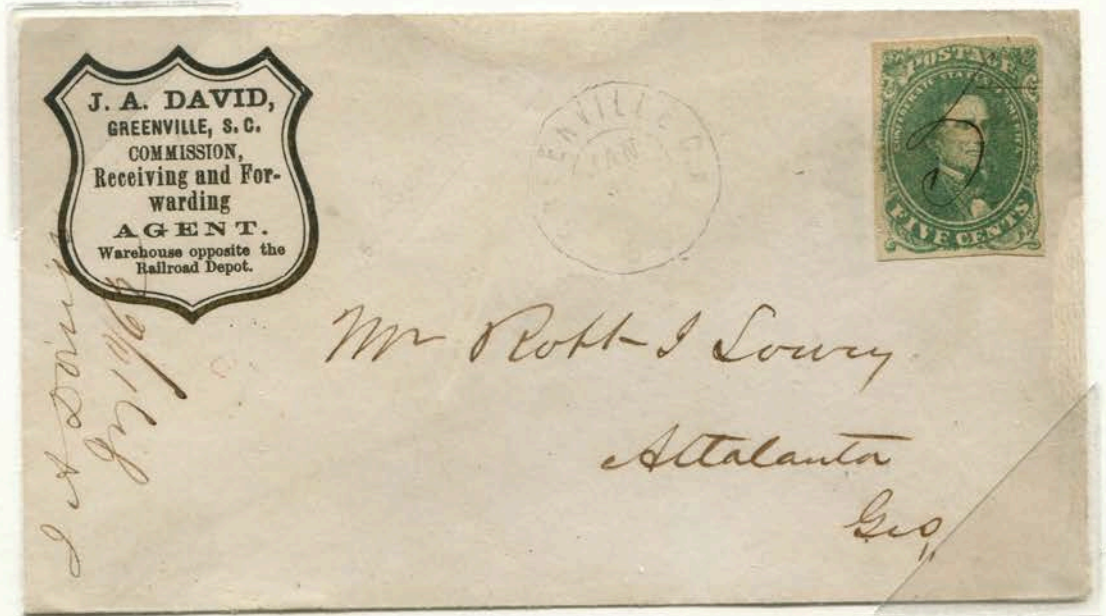 J. A. DAVID,
GREENVILLE, S. C.
COMMISSION,
Receiving and For-
warding
AGENT.
Warehouse opposite the
Railroad Depot.
ENVILLE C. H
JAN
POSTAGE
CONFEDERATE STATES OF AMERICA
5
FIVE CENTS
Mr Robt I Lowry
Attalanta
Geo,,
J A David